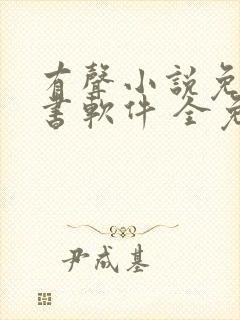 有聲小說免
書軟件 全免
尹成基